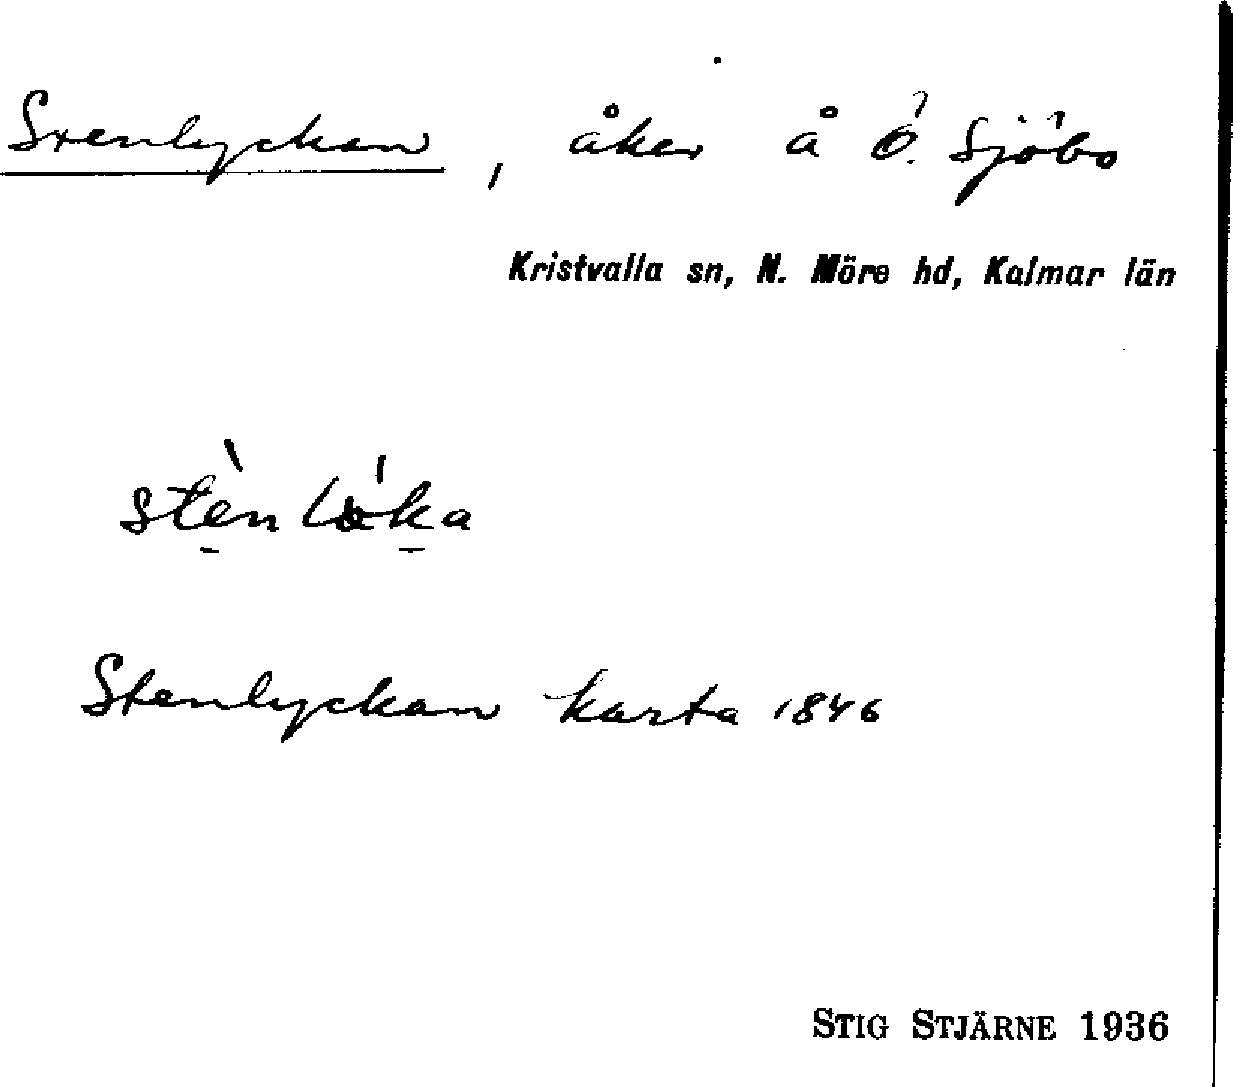 Stenlyckan, åker å Ö. Sjöbo
Kristvalla sn, N. Möre hd, Kalmar län
Stenlyckan karta 1846
STIG STJÄRNE 1936